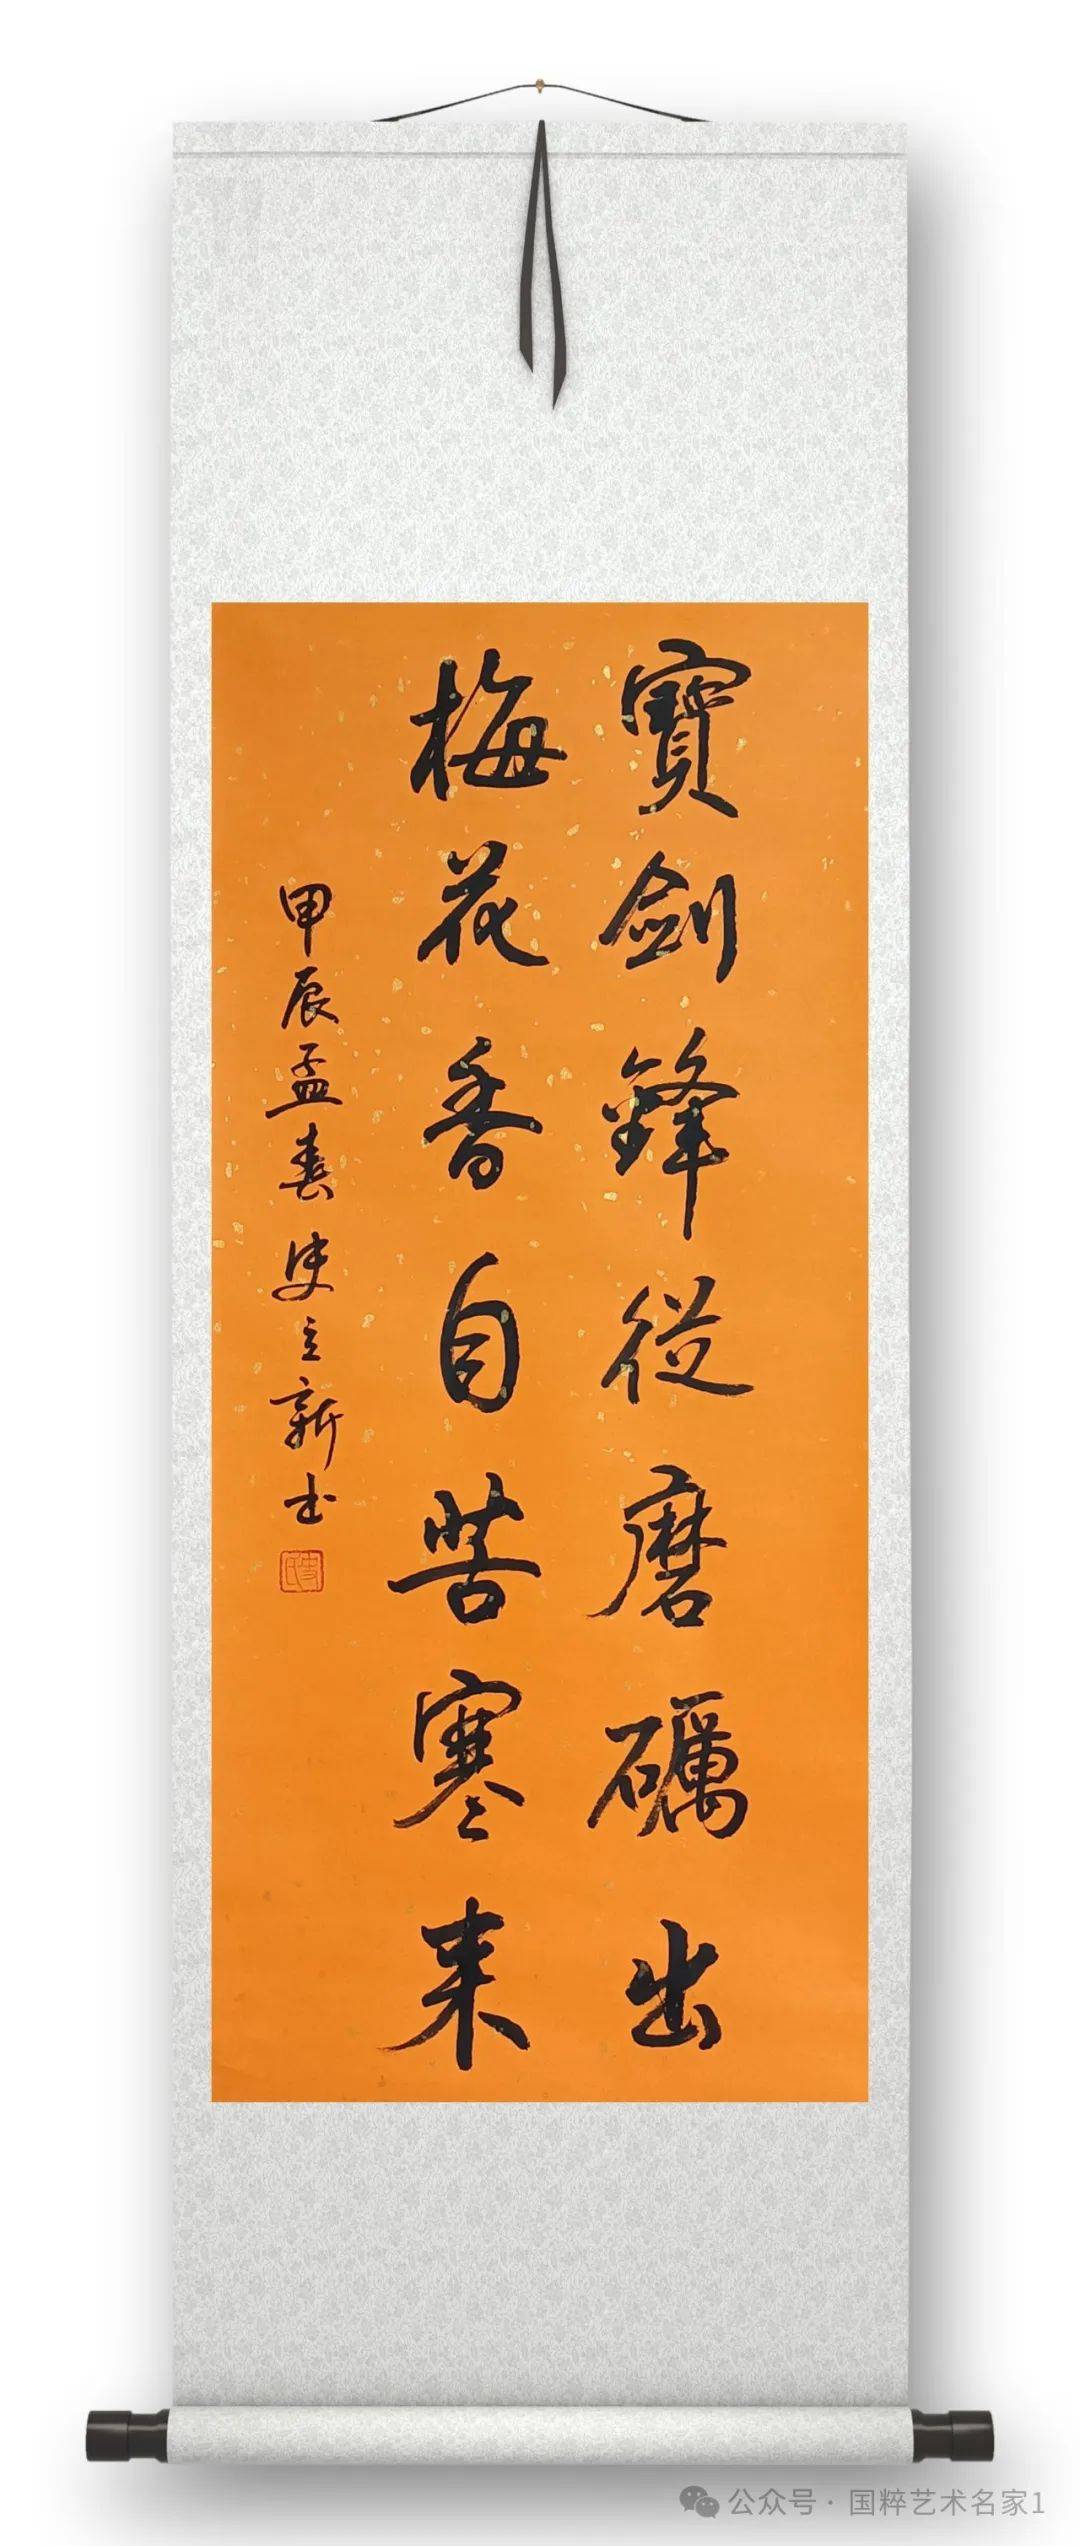 寶劍鋒從磨礪出
梅花香自苦寒来
甲辰孟春史立新书
公众号 · 国粹艺术名家1